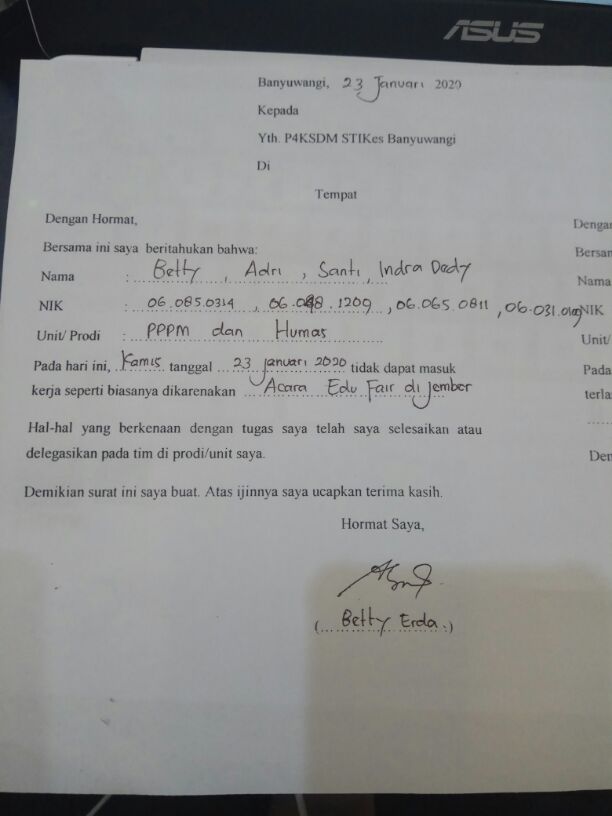 ASUS
Banyuwangi, 23 Januari 2020
Kepada
Yth. P4KSDM STIKes Banyuwangi
Di
Tempat
Dengan Hormat,
Bersama ini saya beritahukan bahwa:
Nama : Betty, Adri, Santi, Indra Dedy
NIK : 06.085.0314, 06.048.1209, 06.065.0811, 06.031.
Unit/ Prodi : PPPM dan Humas
Pada hari ini, Kamis tanggal 23 januari 2020 tidak dapat masuk
kerja seperti biasanya dikarenakan Acara Edu Fair di Jember
Hal-hal yang berkenaan dengan tugas saya telah saya selesaikan atau
delegasikan pada tim di prodi/unit saya.
Demikian surat ini saya buat. Atas ijinnya saya ucapkan terima kasih.
Hormat Saya,
(Betty Erda.)
Dengan
Bersam
Nama
NIK
Unit/
Pada
terla
Den